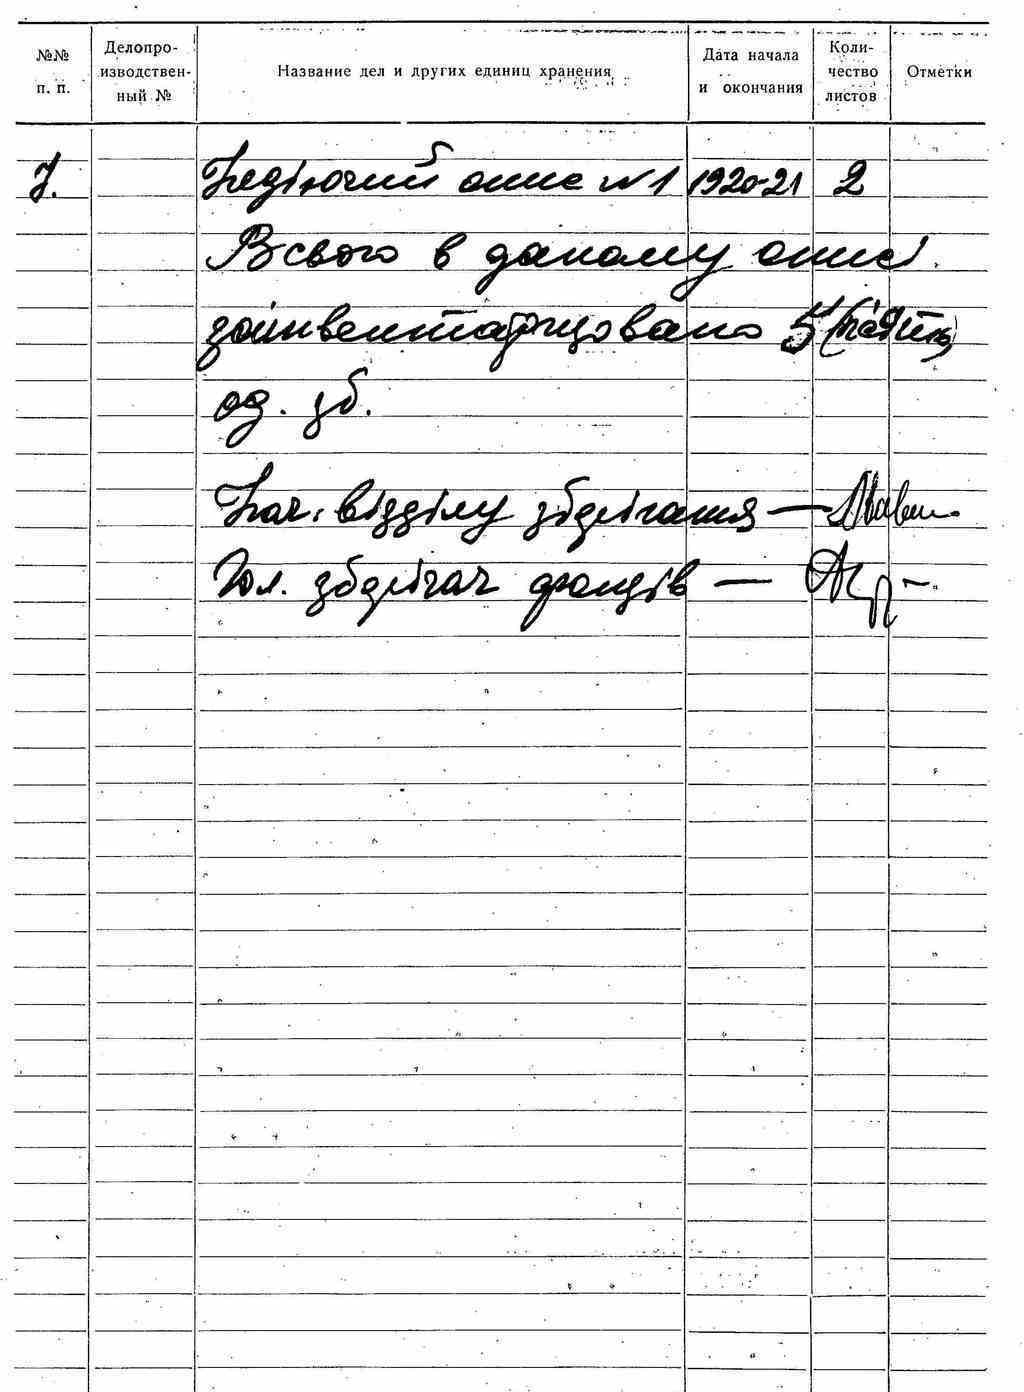 №№ п. п. Делопроизводственный № Название дел и других единиц хранения Дата начала и окончания Количество листов Отметки
7. Недіючий опис №1 1920-21 2
Всього в даному описі
заінвентаризовано 5 (п'ять)
од. зб.
Нач. відділу зберігання —
Гол. зберігач фондів —